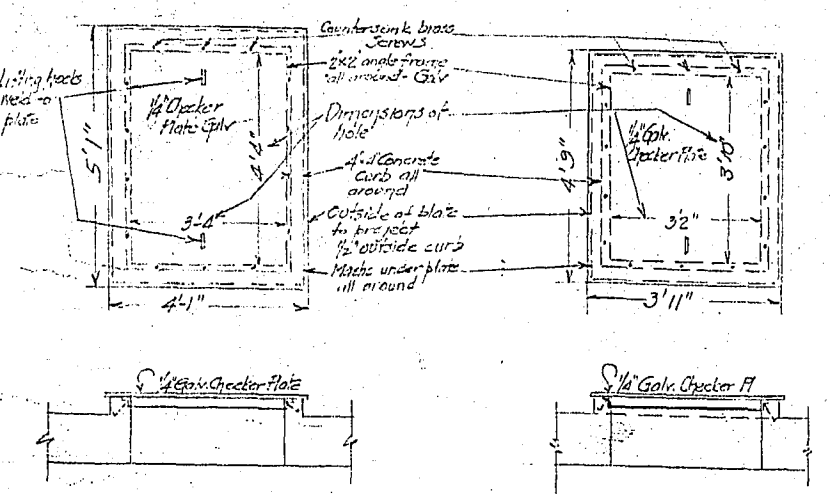 Countersink brass
Screws
2"x2" angle frame
all around - Galv
Lifting hooks
weld to
plate
1/4" Checker
Plate Galv
5'1"
4'4"
3'-4"
4'-1"
Dimensions of
hole
4"x4" Concrete
Curb all
around
Outside of plate
to project
1/2" outside curb
Mastic under plate
all around
4'9"
1/4" Galv.
Checker Plate
3'10"
3'2"
3'11"
1/4" Galv. Checker Plate
1/4" Galv. Checker Pl